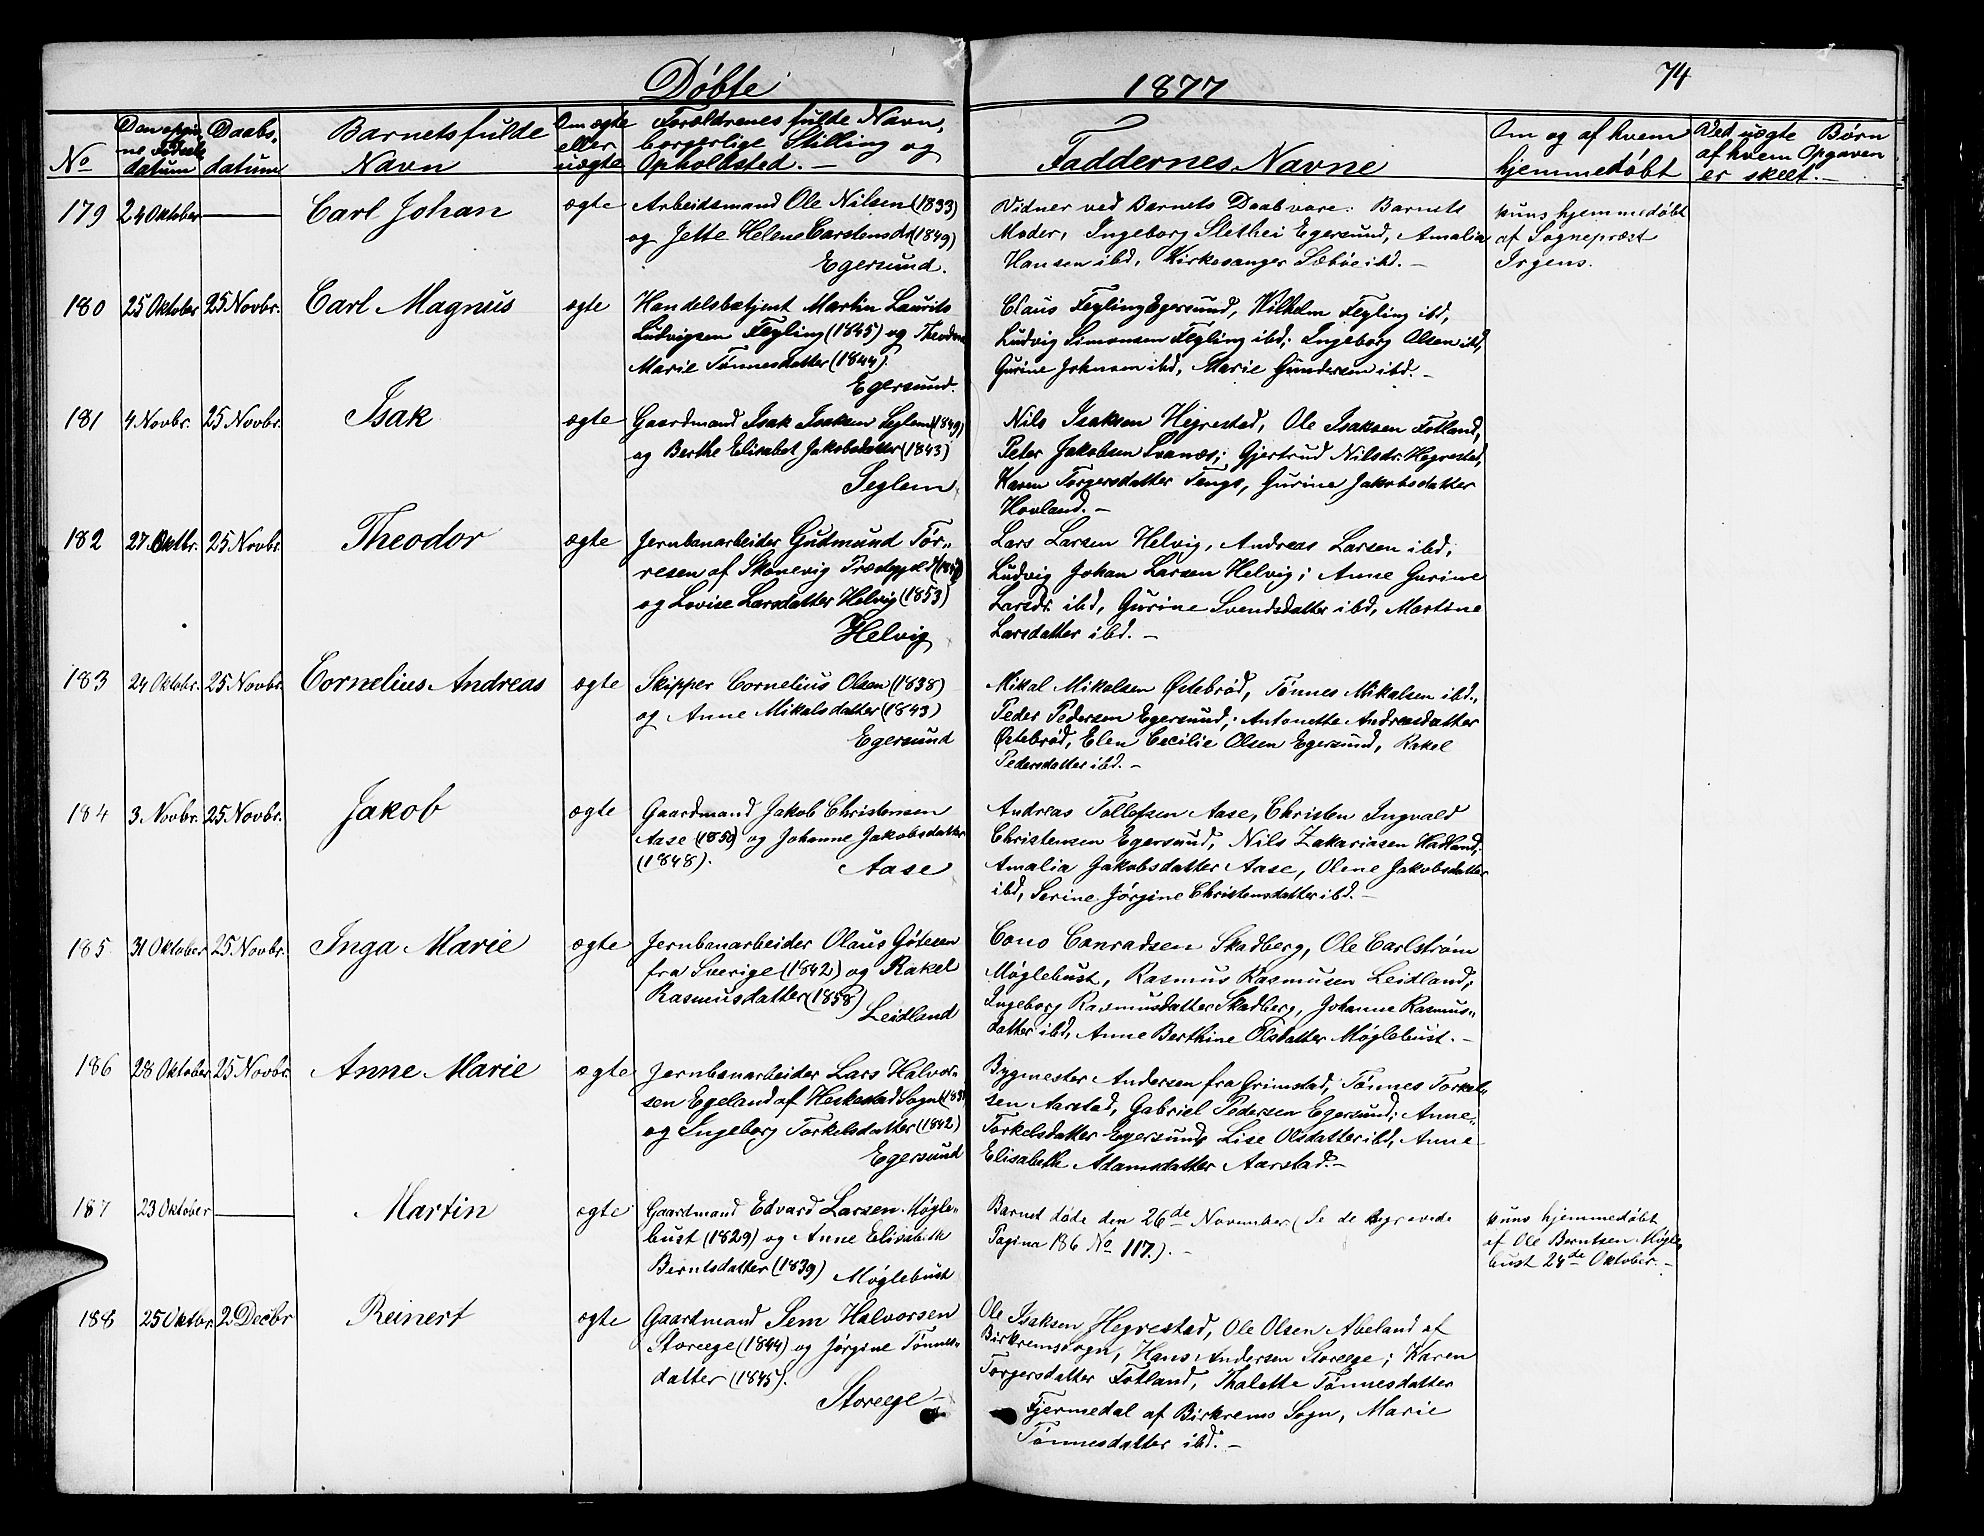 Døbte
1877
74
No
Den opgivne Fødselsdatum
Daabsdatum
Barnets fulde Navn
Om ægte eller uægte
Forældrenes fulde Navn, borgerlige Stilling og Opholdsted. —
Faddernes Navne
Om og af hvem hjemmedøbt
Ved uægte Børn af hvem Opgaven er skeet. —
179 24 Oktober — Carl Johan ægte
Arbeidsmand Ole Nilsen (1833)
og Jette Helene Carstensdr (1849)
Egersund.
Vidner ved Barnets Daab vare: Barnets
Moder, Ingeborg Slethei Egersund, Amalia
Hansen ibd, Kirkesanger Sæbøe ibd. —
kuns hjemmedøbt
af Sognepræst
Irgens.
180 25 Oktober 25 Novbr. Carl Magnus ægte
Handelsbetjent Martin Laurits
Ludvigsen Feyling (1845) og Theodora
Marie Tønnesdatter (1844).
Egersund.
Claus Feyling Egersund, Wilhelm Feyling ibd,
Ludvig Simonsen Feyling ibd; Ingeborg Olsen ibd,
Gurine Johnsen ibd, Marie Gundersen ibd. —
181 4 Novbr. 25 Novbr. Isak ægte
Gaardmand Isak Isaksen Seglem (1849)
og Berthe Elisabet Jakobsdatter (1843)
Seglem
Nils Isaksen Hegrestad, Ole Isaksen Fotland,
Peter Jakobsen Svanæs; Gjertrud Nilsdr. Hegrestad,
Karen Torgersdatter Tengs, Gurine Jakobsdatter
Hovland. —
182 27. Oktbr. 25 Novbr. Theodor ægte
Jernbanarbeider Gudmund Tør-
resen af Skonevig Præstegjeld
og Lovise Larsdatter Helvig (1853)
Helvig
Lars Larsen Helvig, Andreas Larsen ibd,
Ludvig Johan Larsen Helvig; Anne Gurine
Larsdr. ibd, Gurine Svendsdatter ibd, Martine
Larsdatter ibd. —
183 24 Oktobr. 25 Novbr. Cornelius Andreas ægte
Skipper Cornelius Olsen (1838)
og Anne Mikalsdatter (1843)
Egersund
Mikal Mikalsen Østebrød, Tønnes Mikalsen ibd.,
Peder Pedersen Egersund; Antonette Andreasdatter
Østebrød, Elen Cecilie Olsen Egersund, Rakel
Pedersdatter ibd. —
184 3. Novbr. 25 Novbr. Jakob ægte
Gaardmand Jakob Christensen
Aase (1850) og Johanne Jakobsdatter
(1848).
Aase
Andreas Tollefsen Aase, Christen Ingvald
Christensen Egersund, Nils Zakariasen Hadland;
Amalia Jakobsdatter Aase, Olene Jakobsdatter
ibd, Serine Jørgine Christensdatter ibd. —
185 31 Oktober 25 Novbr. Inga Marie ægte
Jernbanarbeider Olaus Gøtesen
fra Sverige (1842) og Rakel
Rasmusdatter (1858)
Leidland
Cono Conradsen Skadberg, Ole Carlstrøm
Møglebust, Rasmus Rasmusen Leidland,
Ingeborg Rasmusdatter Skadberg, Johanne Rasmus-
datter ibd, Anne Berthine Olsdatter Møglebust. —
186 28 Oktober 25 Novbr. Anne Marie ægte
Jernbanarbeider Lars Halvor-
sen Egeland af Heskestad Sogn
og Ingeborg Torkelsdatter (1842)
Egersund
Bygmester Andersen fra Grimstad, Tønnes Torkel-
sen Aarstad, Gabriel Pedersen Egersund; Anne
Torkelsdatter Egersund, Lise Olsdatter ibd, Anne
Elisabeth Adamsdatter Aarstad. —
187 23 Oktober — Martin ægte
Gaardmand Edvard Larsen Møgle-
bust (1829) og Anne Elisabeth
Berntsdatter (1839) Møglebust
Barnet døde den 26de November (Se de begravede
Pagina 186 No 117.). —
kuns hjemmedøbt
af Ole Berntsen Møgle-
bust 24de Oktober. —
188 25 Oktbr 2 Decbr Reinert ægte
Gaardmand Sem Halvorsen
Storeege (1844) og Jørgine Tønnes-
datter (1845).
Storeege
Ole Isaksen Hegrestad, Ole Olsen Abeland af
Birkremsogn, Hans Andersen Storeege; Karen
Torgersdatter Fotland, Thalette Tønnesdatter
Fjermedal af Birkrems Sogn, Marie
Tønnesdatter ibd. —